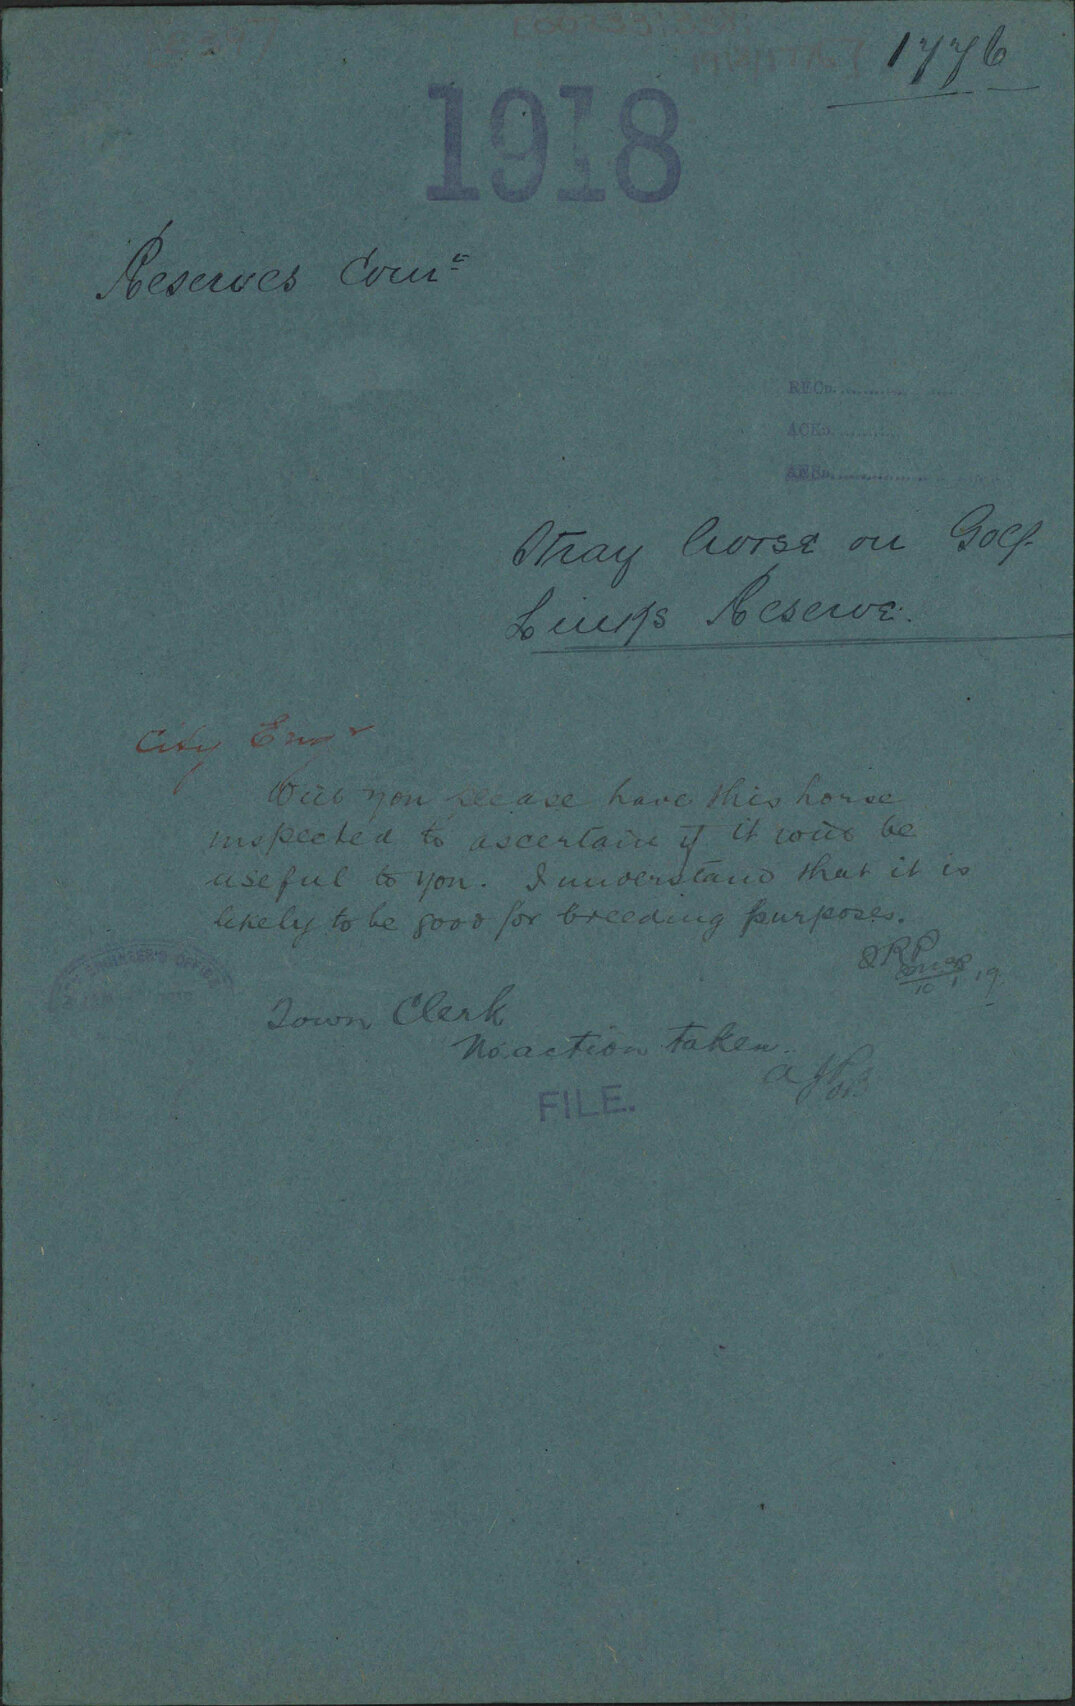 1776
1918
Reserves Comᵉ
RECD.
ACKD.
ANSD.
Stray horse on Golf
Links Reserve.
City Engʳ
Will you please have this horse
inspected to ascertain if it will be
useful to you. I understand that it is
likely to be good for breeding purposes.
10 1 19
ENGINEER'S OFFICE
Town Clerk
No action taken.
FILE.